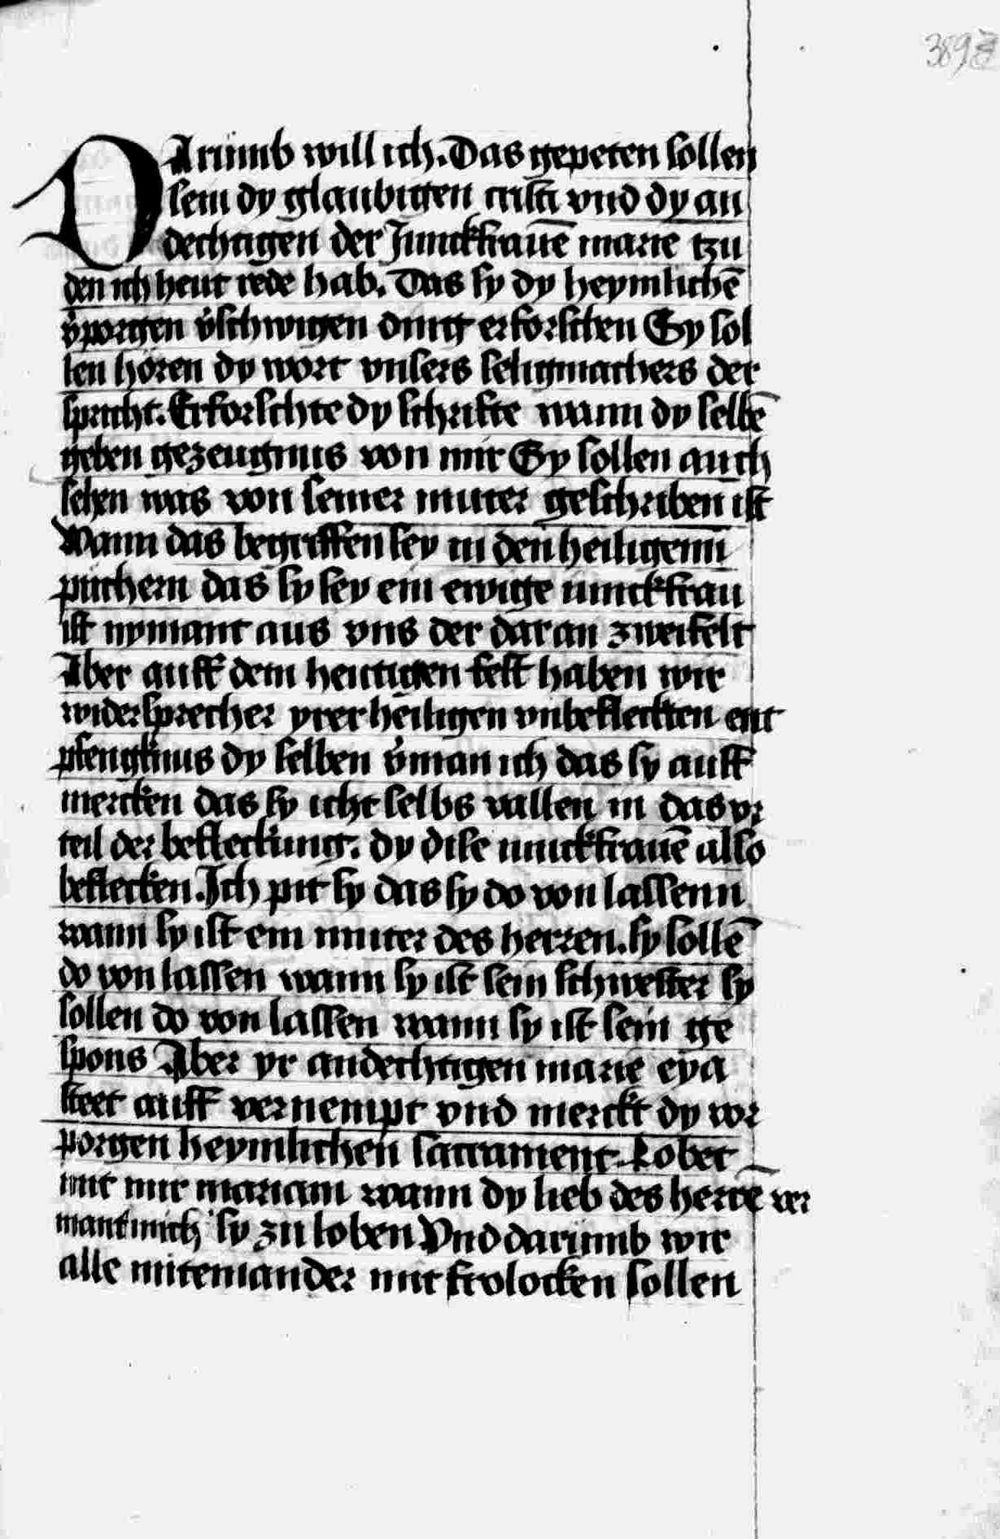 389a
DArumb will ich. Das gepeten sollen
sein dy glaubigen cristi vnd dy an
dechtigen der Junckfrauē marie tzu
den ich heut rede hab. Das sy dy heymlichē
v̓porgen v̓schwigen ding erforschen Sy sol
len hören dy wort vnsers seligmachers der
spricht. Erforschte dy schrifte wann dy selbē
geben gezeugnus von mir Sy sollen auch
sehen was von seiner muter geschriben ist
Wann das begriffen sey in den heiligenn
puchern das sy sey ein ewige iunckfrau
ist nymant aus vns der dar an zweifelt
Aber auff dem heutigen fest haben wir
widersprecher yrer heiligen vnbefleckten ent
pfengknus dy selben v̓man ich das sy auff
mercken das sy icht selbs vallen in das vr
teil der befleckung. dy dise iunckfrauē also
beflecken. Ich pit sy das sy do von lassenn
wann sy ist ein muter des herren. sy sollē
do von lassen wann sy ist sein schwester sy
sollen do von lassen wann sy ist sein ge
spons Aber yr andechtigen marie eya
steet auff vernempt vnd merckt dy vor
porgen heymlichen sacrament Lobet
mit mir mariam wann dy lieb des herrē ver
mant mich sy zu loben Vnd darumb wir
alle miteinander mit frolocken sollen